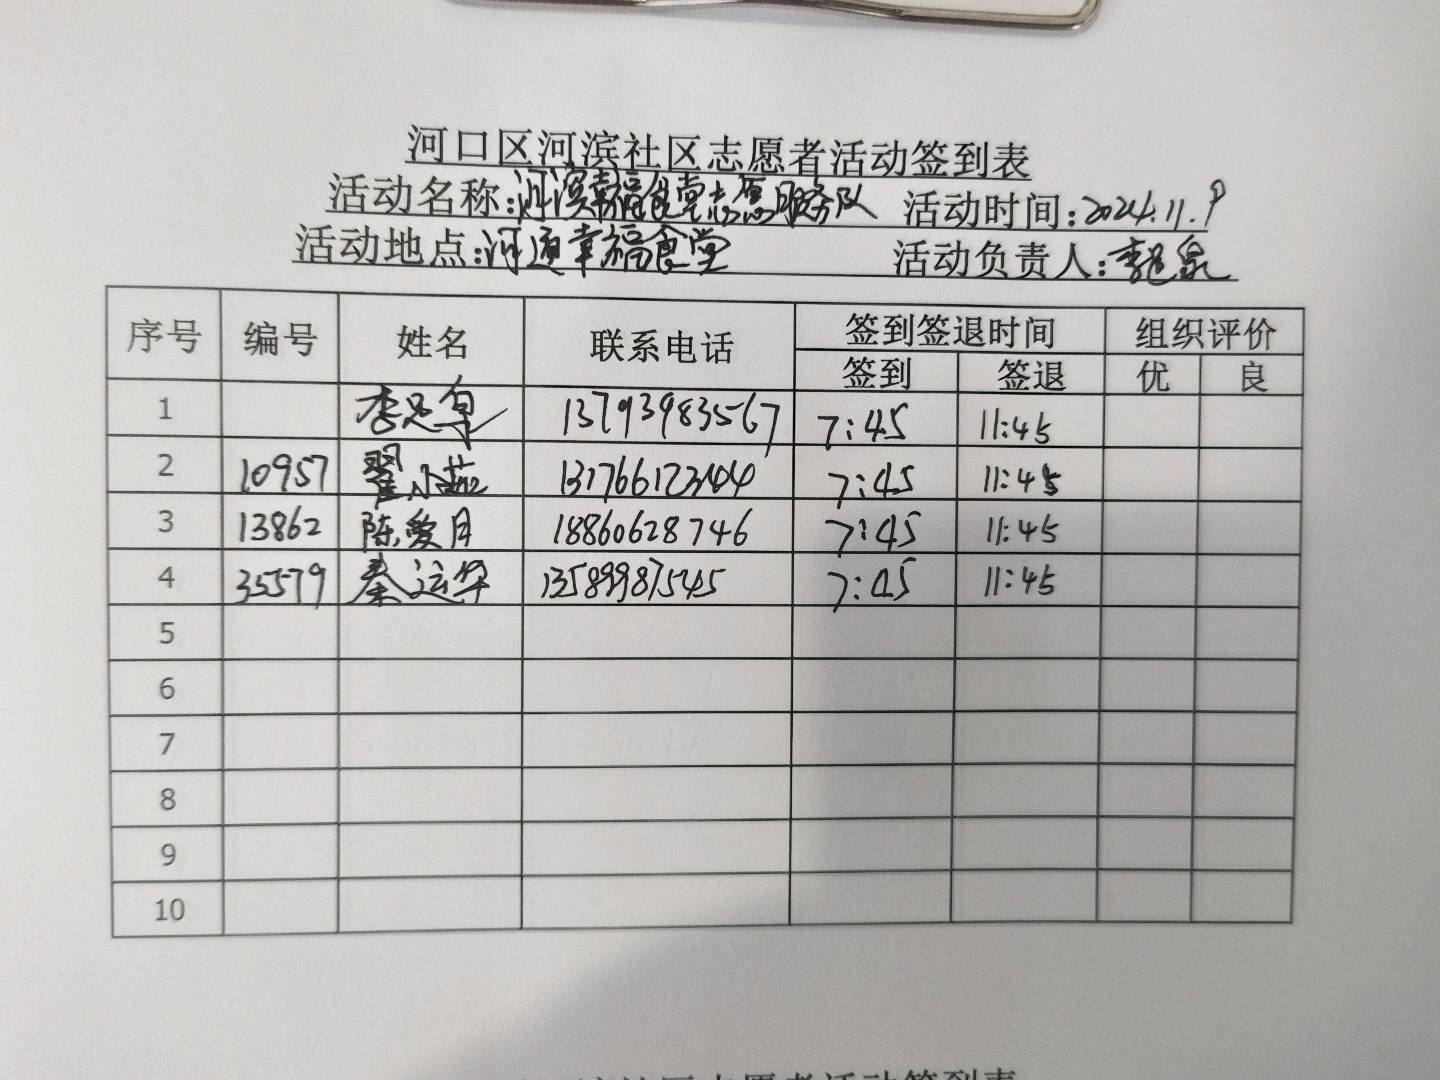 河口区河滨社区志愿者活动签到表
活动名称:河滨幸福食堂志愿服务队 活动时间:2024.11.9
活动地点:河滨幸福食堂 活动负责人:李
序号 编号 姓名 联系电话 签到签退时间 组织评价
签到 签退 优 良
1 李 13793983567 7:45 11:45
2 10957 翟小茹 13176612344 7:45 11:45
3 13862 陈爱月 18860628746 7:45 11:45
4 35579 秦运华 13589987545 7:45 11:45
5
6
7
8
9
10